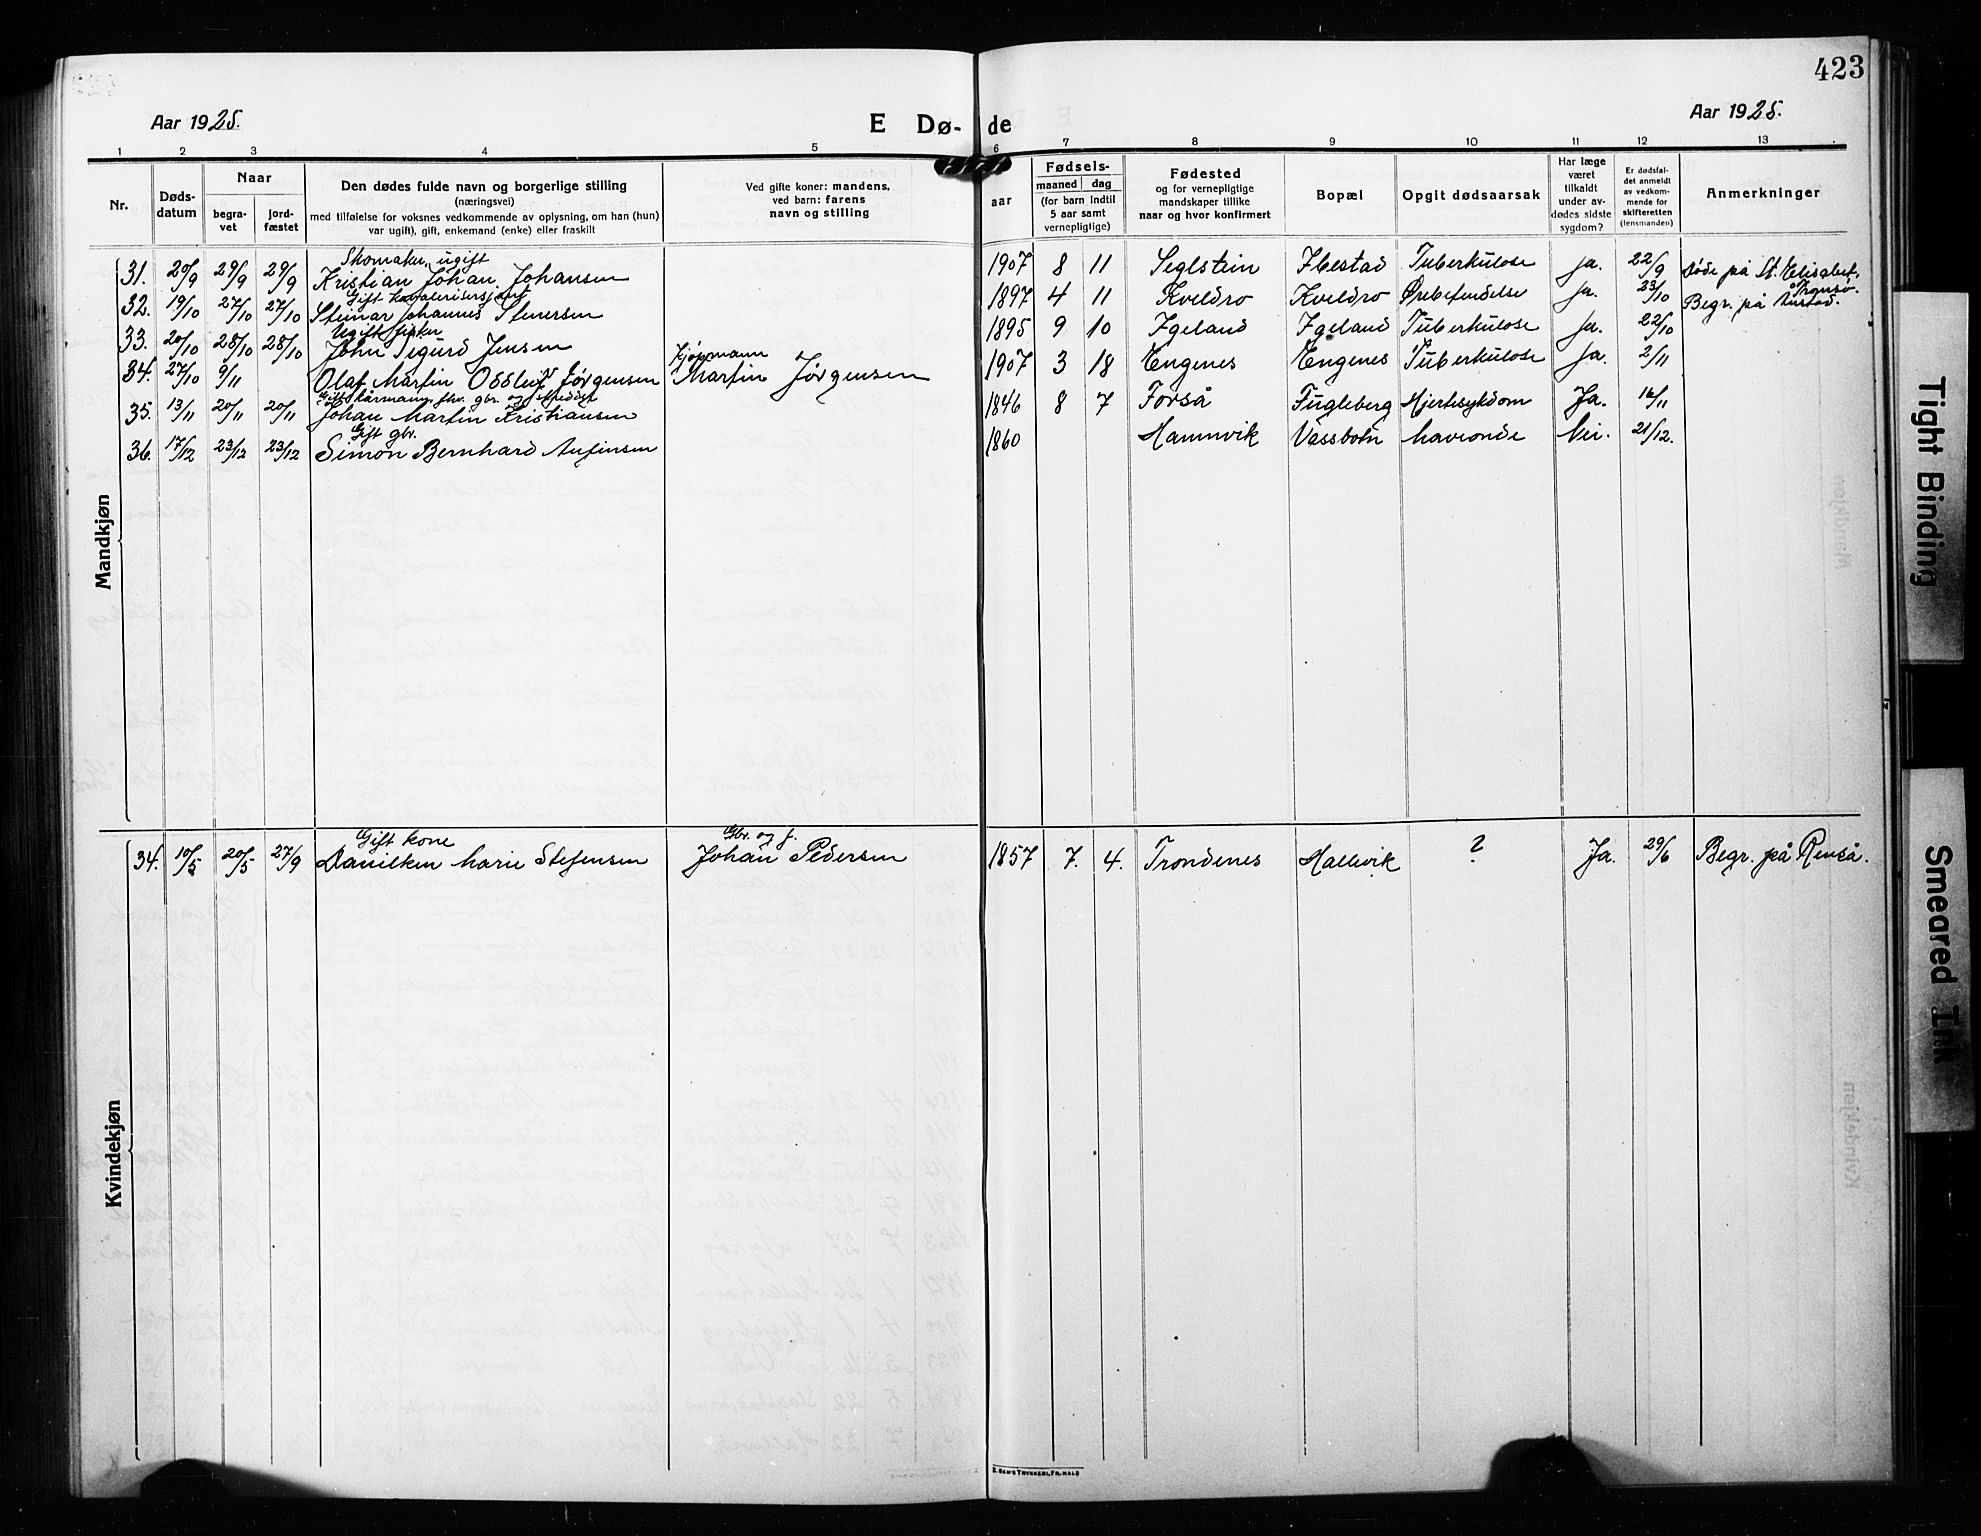 423
Aar 1925.
E Dø-de
Aar 1925.
1 2 3 4 5 6 7 8 9 10 11 12 13
Nr.
Døds-
datum
Naar
begra-
vet
jord-
fæstet
Den dødes fulde navn og borgerlige stilling
(næringsvei)
med tilføielse for voksnes vedkommende av oplysning, om han (hun)
var ugift), gift, enkemand (enke) eller fraskilt
Ved gifte koner: mandens,
ved barn: farens
navn og stilling
Fødsels-
aar
maaned dag
(for barn indtil
5 aar samt
vernepligtige)
Fødested
og for vernepligtige
mandskaper tillike
naar og hvor konfirmert
Bopæl
Opgit dødsaarsak
Har læge
været
tilkaldt
under av-
dødes sidste
sygdom?
Er dødsfal-
det anmeldt
av vedkom-
mende for
skifteretten
(lensmanden)
Anmerkninger
Mandkjøn
Skomaker, ugift
31. 20/9 29/9 29/9 Kristian Johan Johansen 1907 8 11 Seglstein Ibestad Tuberkulose Ja. 22/9 Døde på St. Elisabet, Tromsø.
Gift
32. 19/10 27/10 27/10 Steinar Johannes Stenersen 1897 4 11 Kveldro Kveldro Ørebetendelse Ja. 23/10 Begr. på Ånstad.
Ugift fisker
33. 20/10 28/10 28/10 John Sigurd Jensen 1895 9 10 Igeland Igeland Tuberkulose Ja. 22/10
Kjøpmann
34. 27/10 9/11 Olaf Martin Oddleif Jørgensen Martin Jørgensen 1907 3 18 Engenes Engenes Tuberkulose Ja. 2/11
Gift kårmann, fhv. gbr. og
35. 13/11 20/11 20/11 Johan Martin Kristiansen 1846 8 7 Forså Fugleberg Hjertesykdom Ja. 16/11
Gift gbr.
36. 17/12 23/12 23/12 Simon Bernhard Anfinsen 1860 Hamnvik Vassbotn havronde Nei. 21/12.
Kvindekjøn
Gift kone
Gbr. og f.
34. 10/5 20/5 27/9 Danilken Marie Stefensen Johan Pedersen 1857 7. 4. Trondenes Hallvik ? Ja. 29/6 Begr. på Renså.
E. SEM'S TRYKKERI, FR.HALD
Tight Binding
Smeared Ink